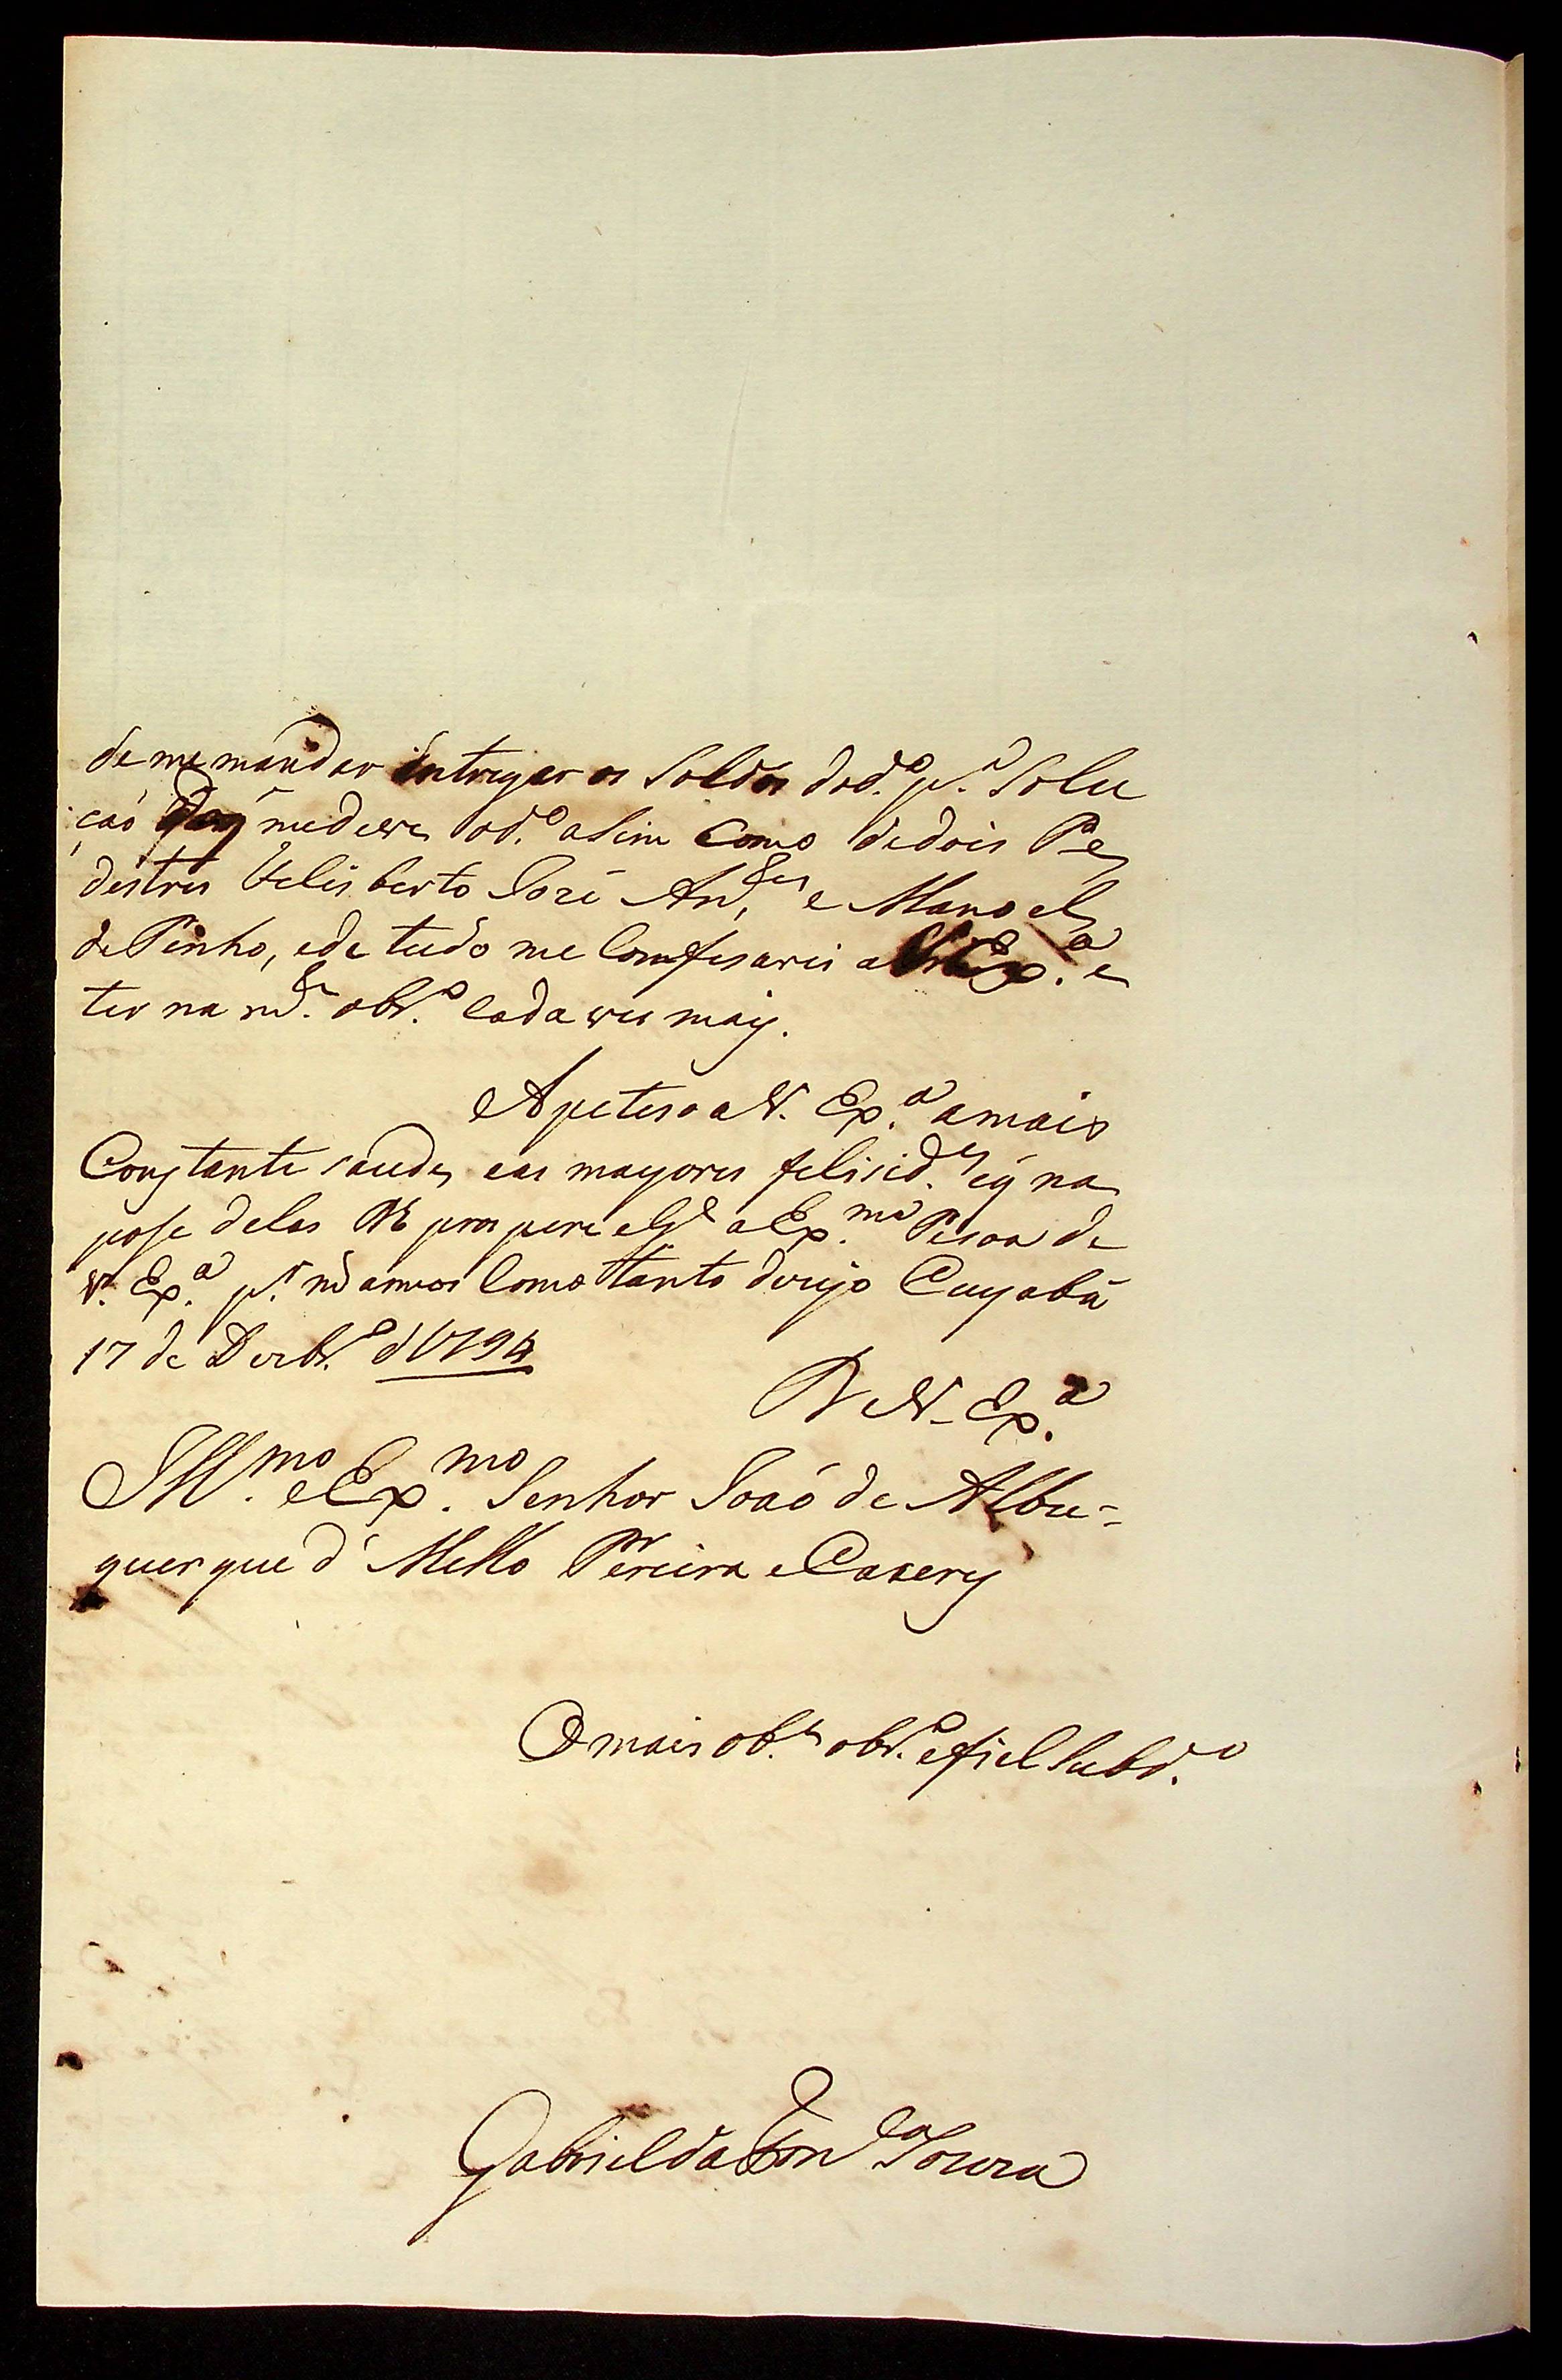 de me mandar entregar os Soldos dod.º p.ª Solu
çaó me deve od.º asim Como de dois Pe
destres Felisberto Jozé An.es e Manoel
de Pinho, e de tudo me Comfesarei a V. Ex.ª e
ter na m.te obr.º Cada ves mais.
Apeteso a V. Ex.ª amais
Constante saude, eas mayores felisid.es eq̃ na
pose delas prospere a Ex.ma Pesoa de
V. Ex.ª p.r m̃ annos Como tanto dezejo Cuyabá
17 de Dezbr.º d 1794
D V. Ex.ª
Ill.mo e Ex.mo Senhor Joaó de Albu-
querque d' Mello Pereira e Caserez
O mais ob.e obr.º e fiel Subd.º
Gabriel da Fon.ca Souza